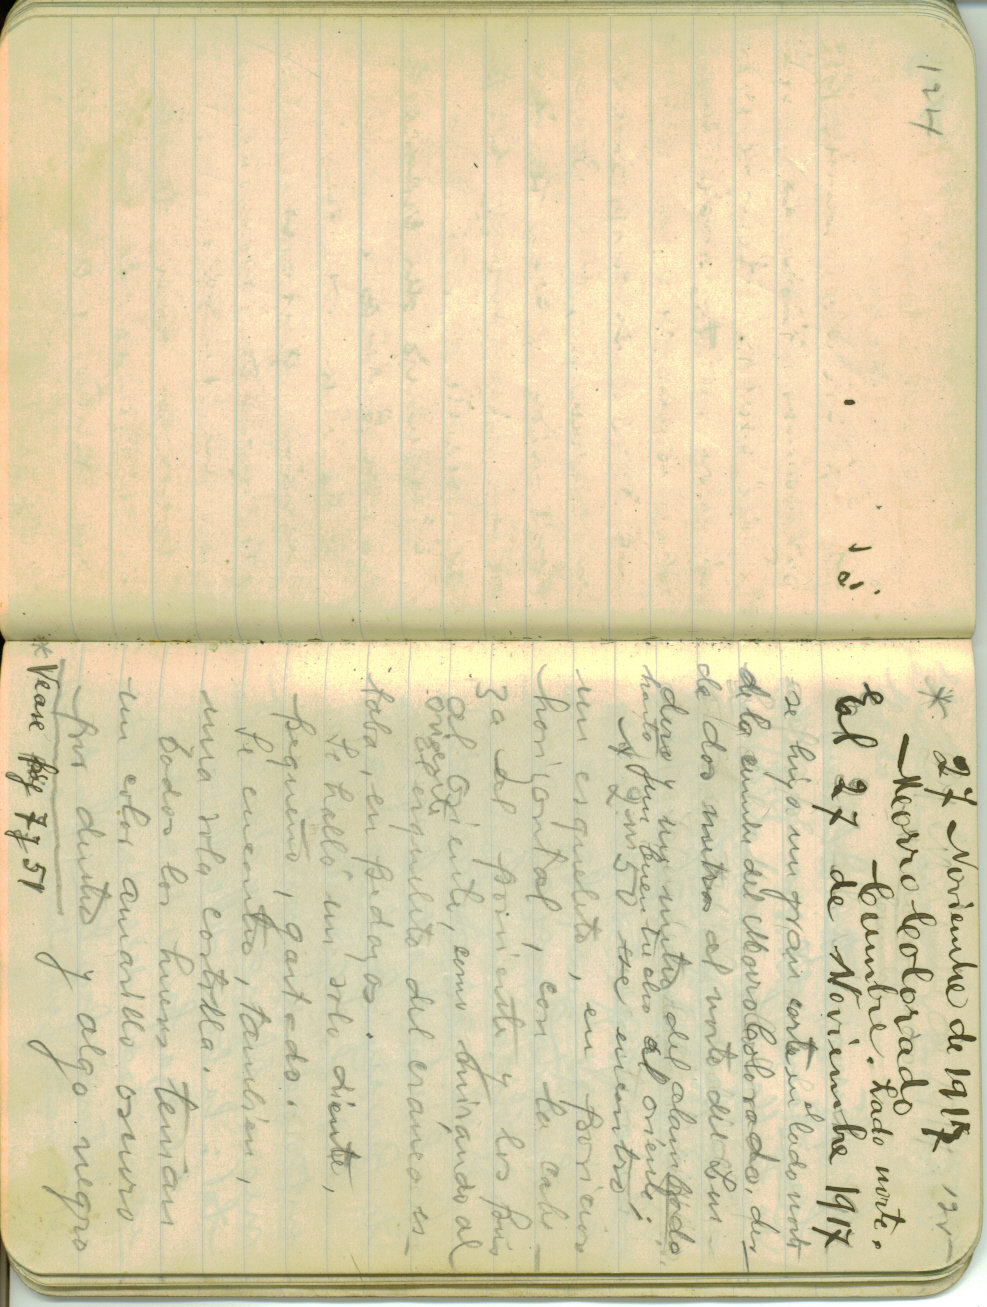 124
* 27 Noviembre de 1917 125
Morro Colorado
Cumbre. Lado norte.
El 27 de Noviembre 1917
se hizo un gran corte en el lado norte
de la cumbre del Morro Colorado, des-
de dos metros al norte del
dero y un metro del alambrado,
hasta un buen trecho al oriente;
A 2 m 50 se encontró
un esqueleto, en posición
horizontal, con la cabe-
za al poniente y los pies
al oriente, como mirando al
oriente
El esqueleto del craneo es-
taba, en pedazos.
Se halló un solo diente,
pequeño, gastado.
Se encontró, tambien,
una sola costilla.
Todos los huesos tenian
un color amarillo oscuro
por dentro y algo negro
* Vease pág 7 y 51